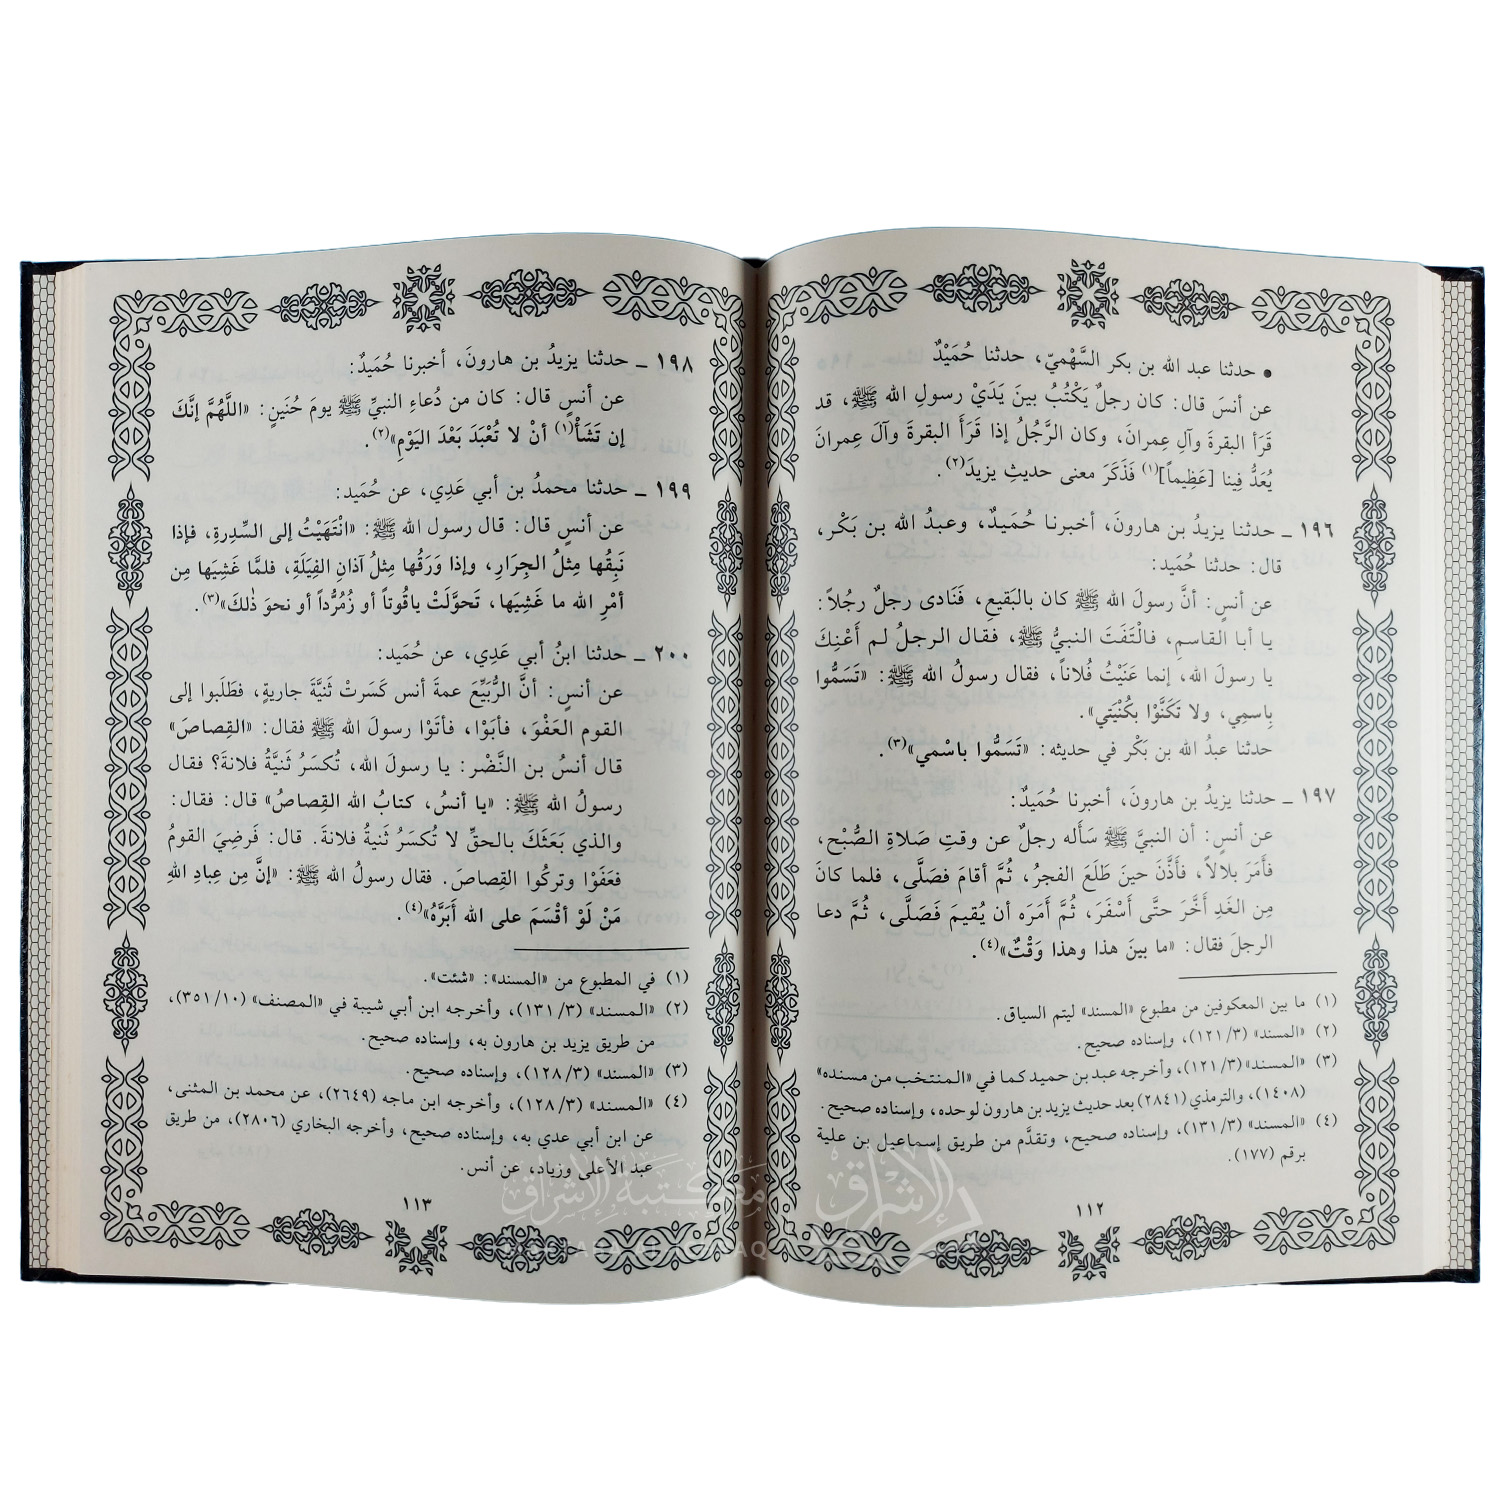 • حدثنا عبد الله بن بكر السَّهْمِيّ، حدثنا حُمَيْدٌ
عن أنسَ قال: كان رجلٌ يَكْتُبُ بينَ يَدَيْ رسولِ الله ﷺ، قد
قَرَأ البقرةَ وآلَ عِمرانَ، وكان الرَّجُلُ إذا قَرَأ البقرةَ وآلَ عِمرانَ
يُعَدُّ فِينا [عَظِيماً](١) فَذَكَرَ معنى حديثِ يزيدَ(٢).
١٩٦ ـ حدثنا يزيدُ بن هارونَ، أخبرنا حُمَيدٌ، وعبدُ الله بن بَكْر،
قال: حدثنا حُمَيد:
عن أنسٍ: أنَّ رسولَ الله ﷺ كان بالبَقيعِ، فَنَادى رجلٌ رجُلاً:
يا أبا القاسمِ، فالْتَفَتَ النبيُّ ﷺ، فقال الرجلُ لم أَعْنِكَ
يا رسولَ الله، إنما عَنَيْتُ فُلاناً، فقال رسولُ الله ﷺ: «تَسَمُّوا
بِاسمِي، ولا تَكَنَّوْا بِكُنْيَتِي».
حدثنا عبدُ الله بن بَكْر في حديثه: «تَسَمُّوا باسْمي»(٣).
١٩٧ ـ حدثنا يزيدُ بن هارونَ، أخبرنا حُمَيدٌ:
عن أنسٍ: أن النبيَّ ﷺ سَأَله رجلٌ عن وقتِ صَلاةِ الصُّبْح،
فأَمَرَ بلالاً، فأَذَّنَ حينَ طَلَعَ الفجرُ، ثُمَّ أقامَ فصَلَّى، فلما كانَ
مِن الغَدِ أخَّرَ حتَّى أَسْفَرَ، ثُمَّ أمَرَه أن يُقيمَ فَصَلَّى، ثُمَّ دعا
الرجلَ فقال: «ما بينَ هذا وهذا وَقْتٌ»(٤).
(١) ما بين المعكوفين من مطبوع «المسند» ليتم السياق.
(٢) «المسند» (٣/ ١٢١)، وإسناده صحيح.
(٣) «المسند» (٣/ ١٢١)، وأخرجه عبد بن حميد كما في «المنتخب من مسنده»
(١٤٠٨)، والترمذي (٢٨٤١) بعد حديث يزيد بن هارون لوحده، وإسناده صحيح.
(٤) «المسند» (٣/ ١٣١)، وإسناده صحيح، وتقدَّم من طريق إسماعيل بن علية
برقم (١٧٧).
١١٢
١٩٨ ـ حدثنا يزيدُ بن هارونَ، أخبرنا حُمَيدٌ:
عن أنسٍ قال: كان من دُعاءِ النبيِّ ﷺ يومَ حُنَينٍ: «اللَّهُمَّ إنَّكَ
إن تَشَأْ(١) أنْ لا تُعْبَدَ بَعْدَ اليَوْمِ»(٢).
١٩٩ ـ حدثنا محمدُ بن أبي عَدِي، عن حُمَيد:
عن أنسٍ قال: قال رسول الله ﷺ: «انْتَهَيْتُ إلى السِّدِرةِ، فإذا
نَبِقُها مِثلُ الجِرَارِ، وإذا وَرَقُها مِثلُ آذانِ الفِيَلَةِ، فلمَّا غَشِيَها مِن
أمْرِ الله ما غَشِيَها، تَحوَّلَتْ ياقُوتاً أو زُمُرُّداً أو نحوَ ذٰلكَ»(٣).
٢٠٠ ـ حدثنا ابنُ أبي عَدِي، عن حُمَيد:
عن أنسٍ: أنَّ الرُّبَيِّعَ عمةَ أنس كَسَرتْ ثَنِيَّةَ جاريةٍ، فطَلَبوا إلى
القوم العَفْوَ، فأبَوْا، فأتَوْا رسولَ الله ﷺ فقال: «القِصاصَ»
قال أنسُ بن النَّضْر: يا رسولَ الله، تُكسَرُ ثَنيَّةُ فلانةَ؟ فقال
رسولُ الله ﷺ: «يا أنسُ، كتابُ الله القِصاصُ» قال: فقال:
والذي بَعَثَكَ بالحقِّ لا تُكسَرُ ثَنيةُ فلانةَ. قال: فَرضِيَ القومُ
فعَفَوْا وتركُوا القِصاصَ. فقال رسولُ الله ﷺ: «إنَّ مِن عِبادِ اللهِ
مَنْ لَوْ أقْسَمَ على الله أَبَرَّهُ»(٤).
(١) في المطبوع من «المسند»: «شئت».
(٢) «المسند» (٣/ ١٣١)، وأخرجه ابن أبي شيبة في «المصنف» (١٠/ ٣٥١)،
من طريق يزيد بن هارون به، وإسناده صحيح.
(٣) «المسند» (٣/ ١٢٨)، وإسناده صحيح.
(٤) «المسند» (٣/ ١٢٨)، وأخرجه ابن ماجه (٢٦٤٩)، عن محمد بن المثنى،
عن ابن أبي عدي به، وإسناده صحيح، وأخرجه البخاري (٢٨٠٦)، من طريق
عبد الأعلى وزياد، عن أنس.
١١٣
مكتبة الإشراق
الإشراق